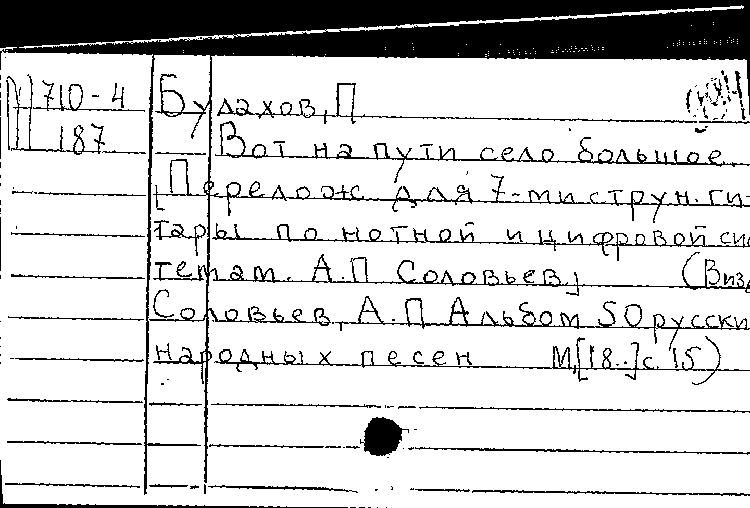 710-4
187
Булахов, П.
Вот на пути село большое.
[Перелож. для 7-ми струн. ги-
тары по нотной и цифровой сис
темам. А.П Соловьев.] (В изд
Соловьев, А.П Альбом 50 русски
народных песен М,[18..] с. 15)